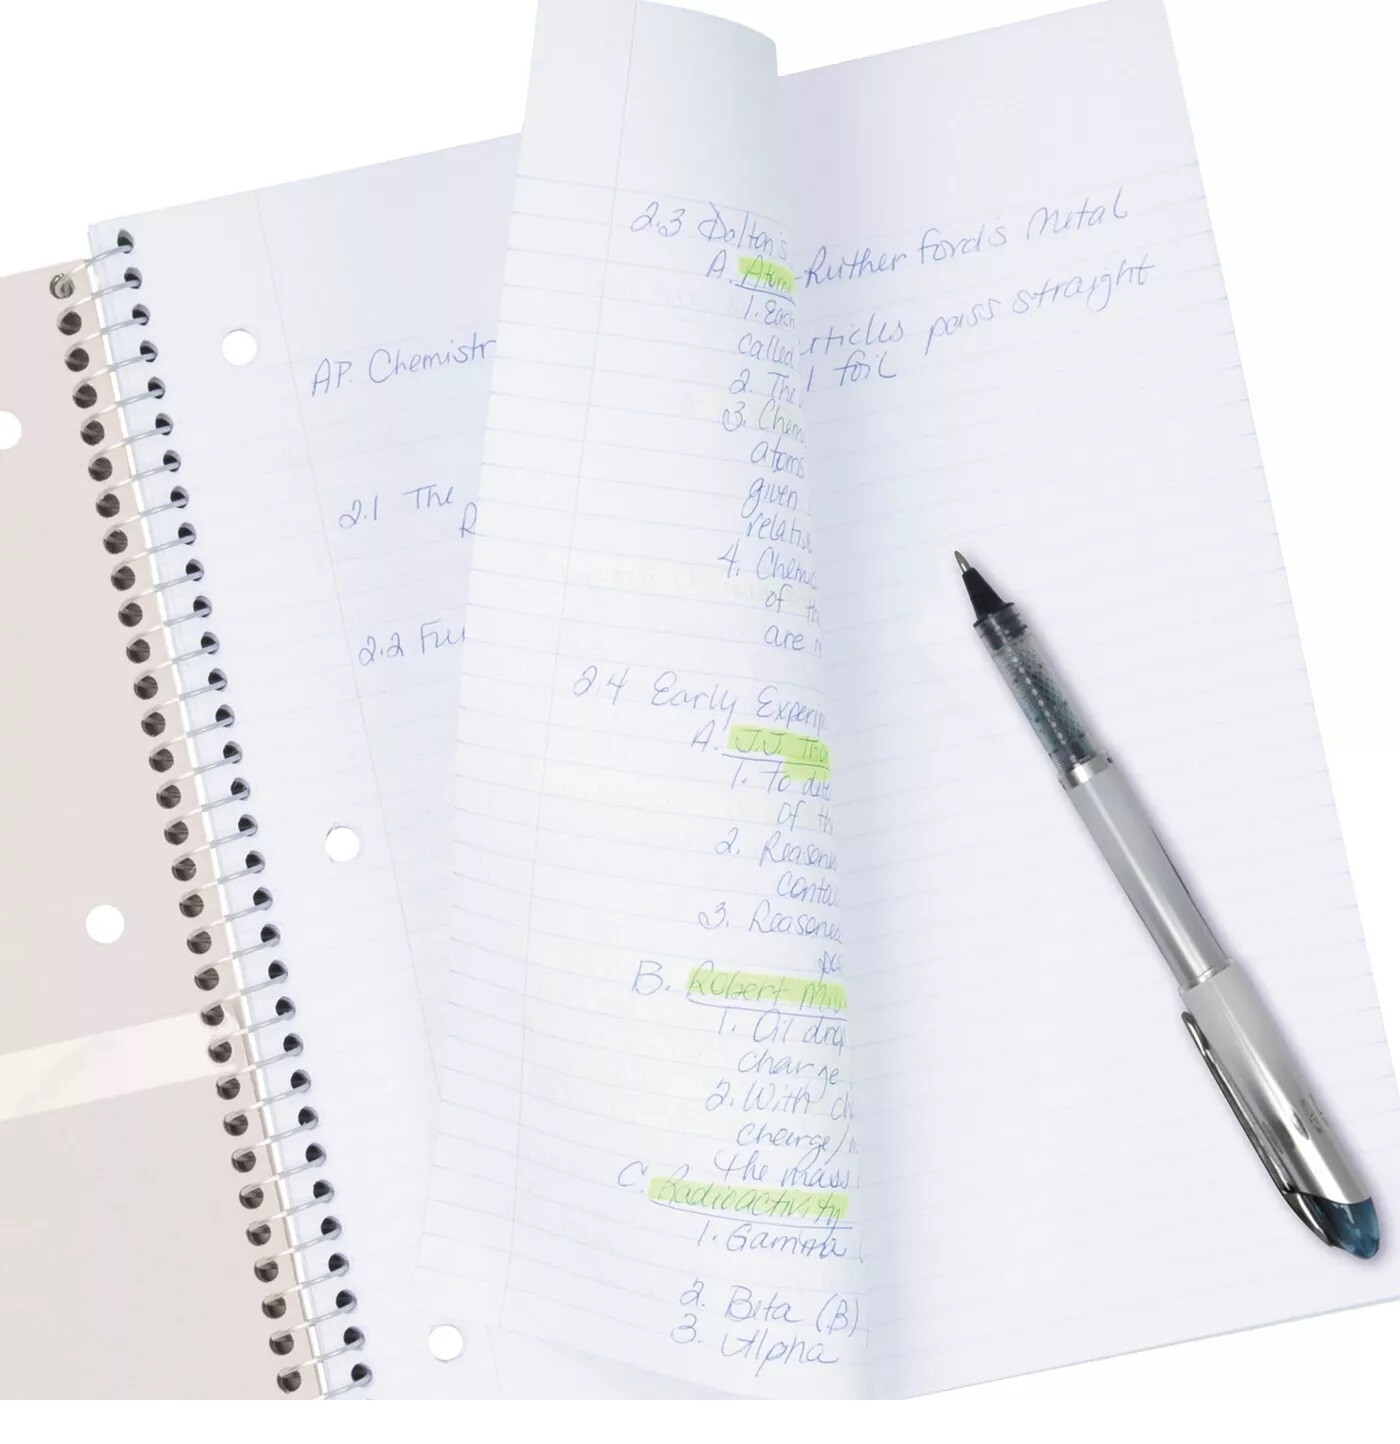 AP. Chemistr
2.1 The
R
2.2 Fu
2.3 Dalton's
A. Atom
1. Each
called
2. The
3. Chem
atoms
given
relati
4. Chem
of th
are
2.4 Early Experi
A. J.J. Tho
1. To det
of th
2. Reason
conta
3. Reasone
pa
B. Robert Mil
1. Oil drop
charge
2. With ch
charge/
the mass
C. Radioactivity
1. Gamma
2. Beta (B)
3. Alpha
-Rutherford's Metal
rticles pass straight
l foil